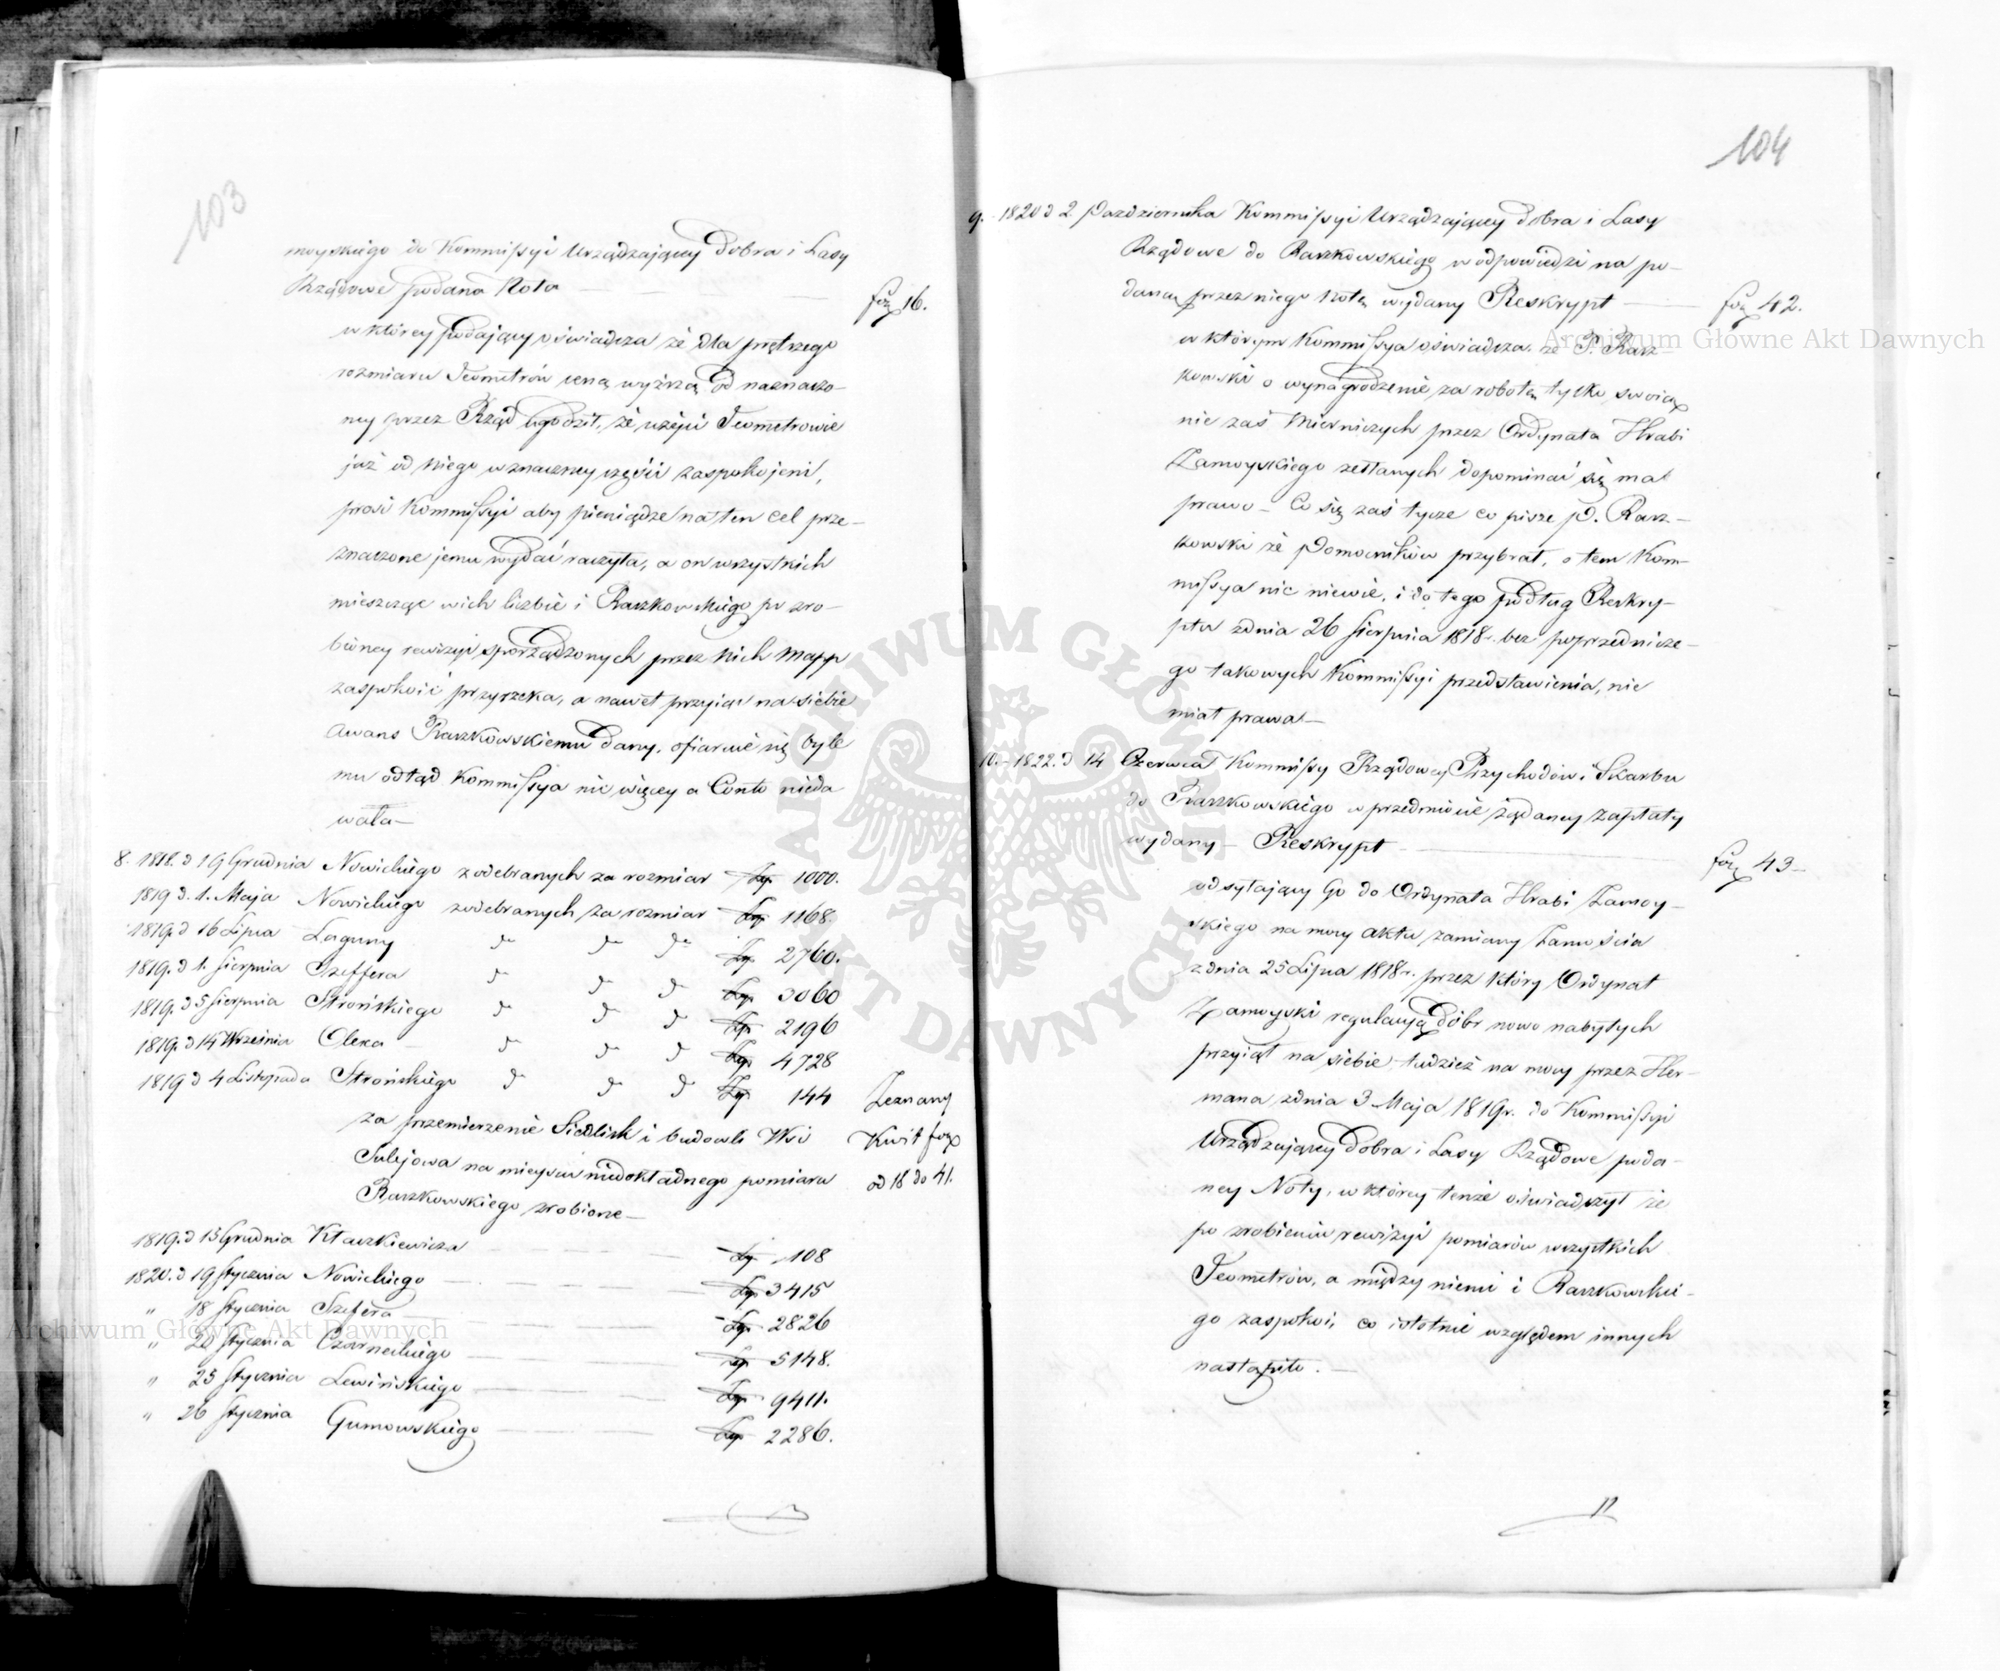 103
moyskiego do Kommissyi Urządzaiącey Dobra i Lasy
Rządowe podana Nota
fog 16.
w którey podaiący oświadcza że dla prętszego
rozmiaru Jeometrów ceną wyższą od naznaczo-
ney przez Rząd ugodził, że użyci Jeometrowie
już od niego w znaczney części zaspokojeni,
prosi Kommissyi aby pieniądze na ten cel prze-
znaczone jemu wydać raczyła, a on wszystkich
mieszcząc w ich liczbie i Raszkowskiego po zro-
bioney rewizyi sporządzonych przez nich mapp
zaspokoić przyrzeka, a nawet przyiąć na siebie
Awans Raszkowskiemu dany, ofiaruie się byle
mu odtąd Kommissya nic więcey a Conto nieda
wała—
8. 1818. d 19 Grudnia Nowickiego z odebranych za rozmiar Złp 1000.
1819 d. 1. Maja Nowickiego z odebranych za rozmiar Złp 1168.
1819. d 16 Lipca Laguny do do do Złp 2760.
1819. d 1. Sierpnia Szeffera do do do Złp 3060
1819. d 5 Sierpnia Strońskiego do do do Złp 2196
1819. d 14 Września Olexa — do do do Złp 4728
1819 d 4 Listopada Strońskiego do do do Złp 144
Zeznany
Kwit fog
od 18 do 41.
za przemierzenie Siedlisk i budowli Wsi
Sulejowa na mieyscu niedokładnego pomiaru
Raszkowskiego zrobione—
1819. d 15 Grudnia Kłaczkiewicza Złp 108
1820. d 19 Stycznia Nowickiego Złp 3415
" 18 Stycznia Szefera Złp 2826
" 20 Stycznia Czarneckiego Złp 5148.
" 25 Stycznia Lewińskiego Złp 9411.
" 26 Stycznia Gumowskiego Złp 2286.
104
9. 1820 d 2 Pazdziernika Kommissyi Urządzaiącey Dobra i Lasy
Rządowe do Raszkowskiego w odpowiedzi na po-
daną przez niego Notę wydany Reskrypt
fog 42.
w którym Kommissya oświadcza że P. Rasz-
kowski o wynagrodzenie za robotę tylko swoią
nie zaś Mierniczych przez Ordynata Hrabi
Zamoyskiego zesłanych dopominać się ma
prawo — Co się zaś tycze co pisze P. Rasz-
kowski że Pomocników przybrał, o tem Kom-
missya nic niewie, i do tego podług Reskry-
ptu z dnia 26 Sierpnia 1818 r. bez poprzednicze-
go takowych Kommissyi przedstawienia, nie
miał prawa—
10. 1822. d 14 Czerwca Kommissy Rządowey Przychodów i Skarbu
do Raszkowskiego w przedmiocie żądaney zapłaty
wydany — Reskrypt —
fog 43 —
odsyłaiący Go do Ordynata Hrabi Zamoy-
skiego na mocy aktu zamiany Zamościa
z dnia 25 Lipca 1818 r. przez który Ordynat
Zamoyski regulacyą dóbr nowo nabytych
przyiął na siebie tudzież na mocy przez Her-
mana z dnia 3 Maja 1819 r. do Kommissyi
Urządzaiącey Dobra i Lasy Rządowe poda-
ney Noty, w którey tenże oświadczył że
po zrobieniu rewizyi pomiarów wszystkich
Jeometrów, a między niemi i Raszkowskie-
go zaspokoi, co istotnie względem innych
nastąpiło. —
11
Archiwum Główne Akt Dawnych
Archiwum Główne Akt Dawnych
ARCHIWUM GŁÓWNE AKT DAWNYCH